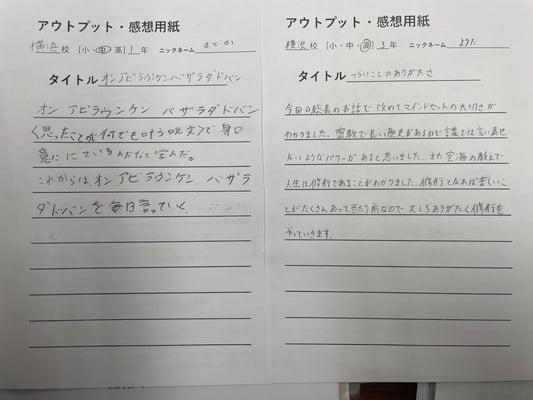 アウトプット・感想用紙
横浜校 [小・中・高] 1年 ニックネーム
タイトル オンアビラウンケンバザラダドバン
オン アビラウンケン バザラダドバン
く思ったことが何でも叶う呪文で
にているんだなと学んだ。
これからは、オン アビラウンケン バザラ
ダドバンを毎日言っていく。
アウトプット・感想用紙
横浜校 [小・中・高] 3年 ニックネーム
タイトル つらいことのありがたさ
今回の総長のお話で改めてマインドセットの大切さが
わかりました。密教で長い歴史があるので言葉では言い表せ
ないようなパワーがあると思いました。また空海の教えで
人生は修行であることがわかりました。修行となれば苦しいこ
とがたくさんあって当たり前なので むしろありがたく修行を
やっていきます。